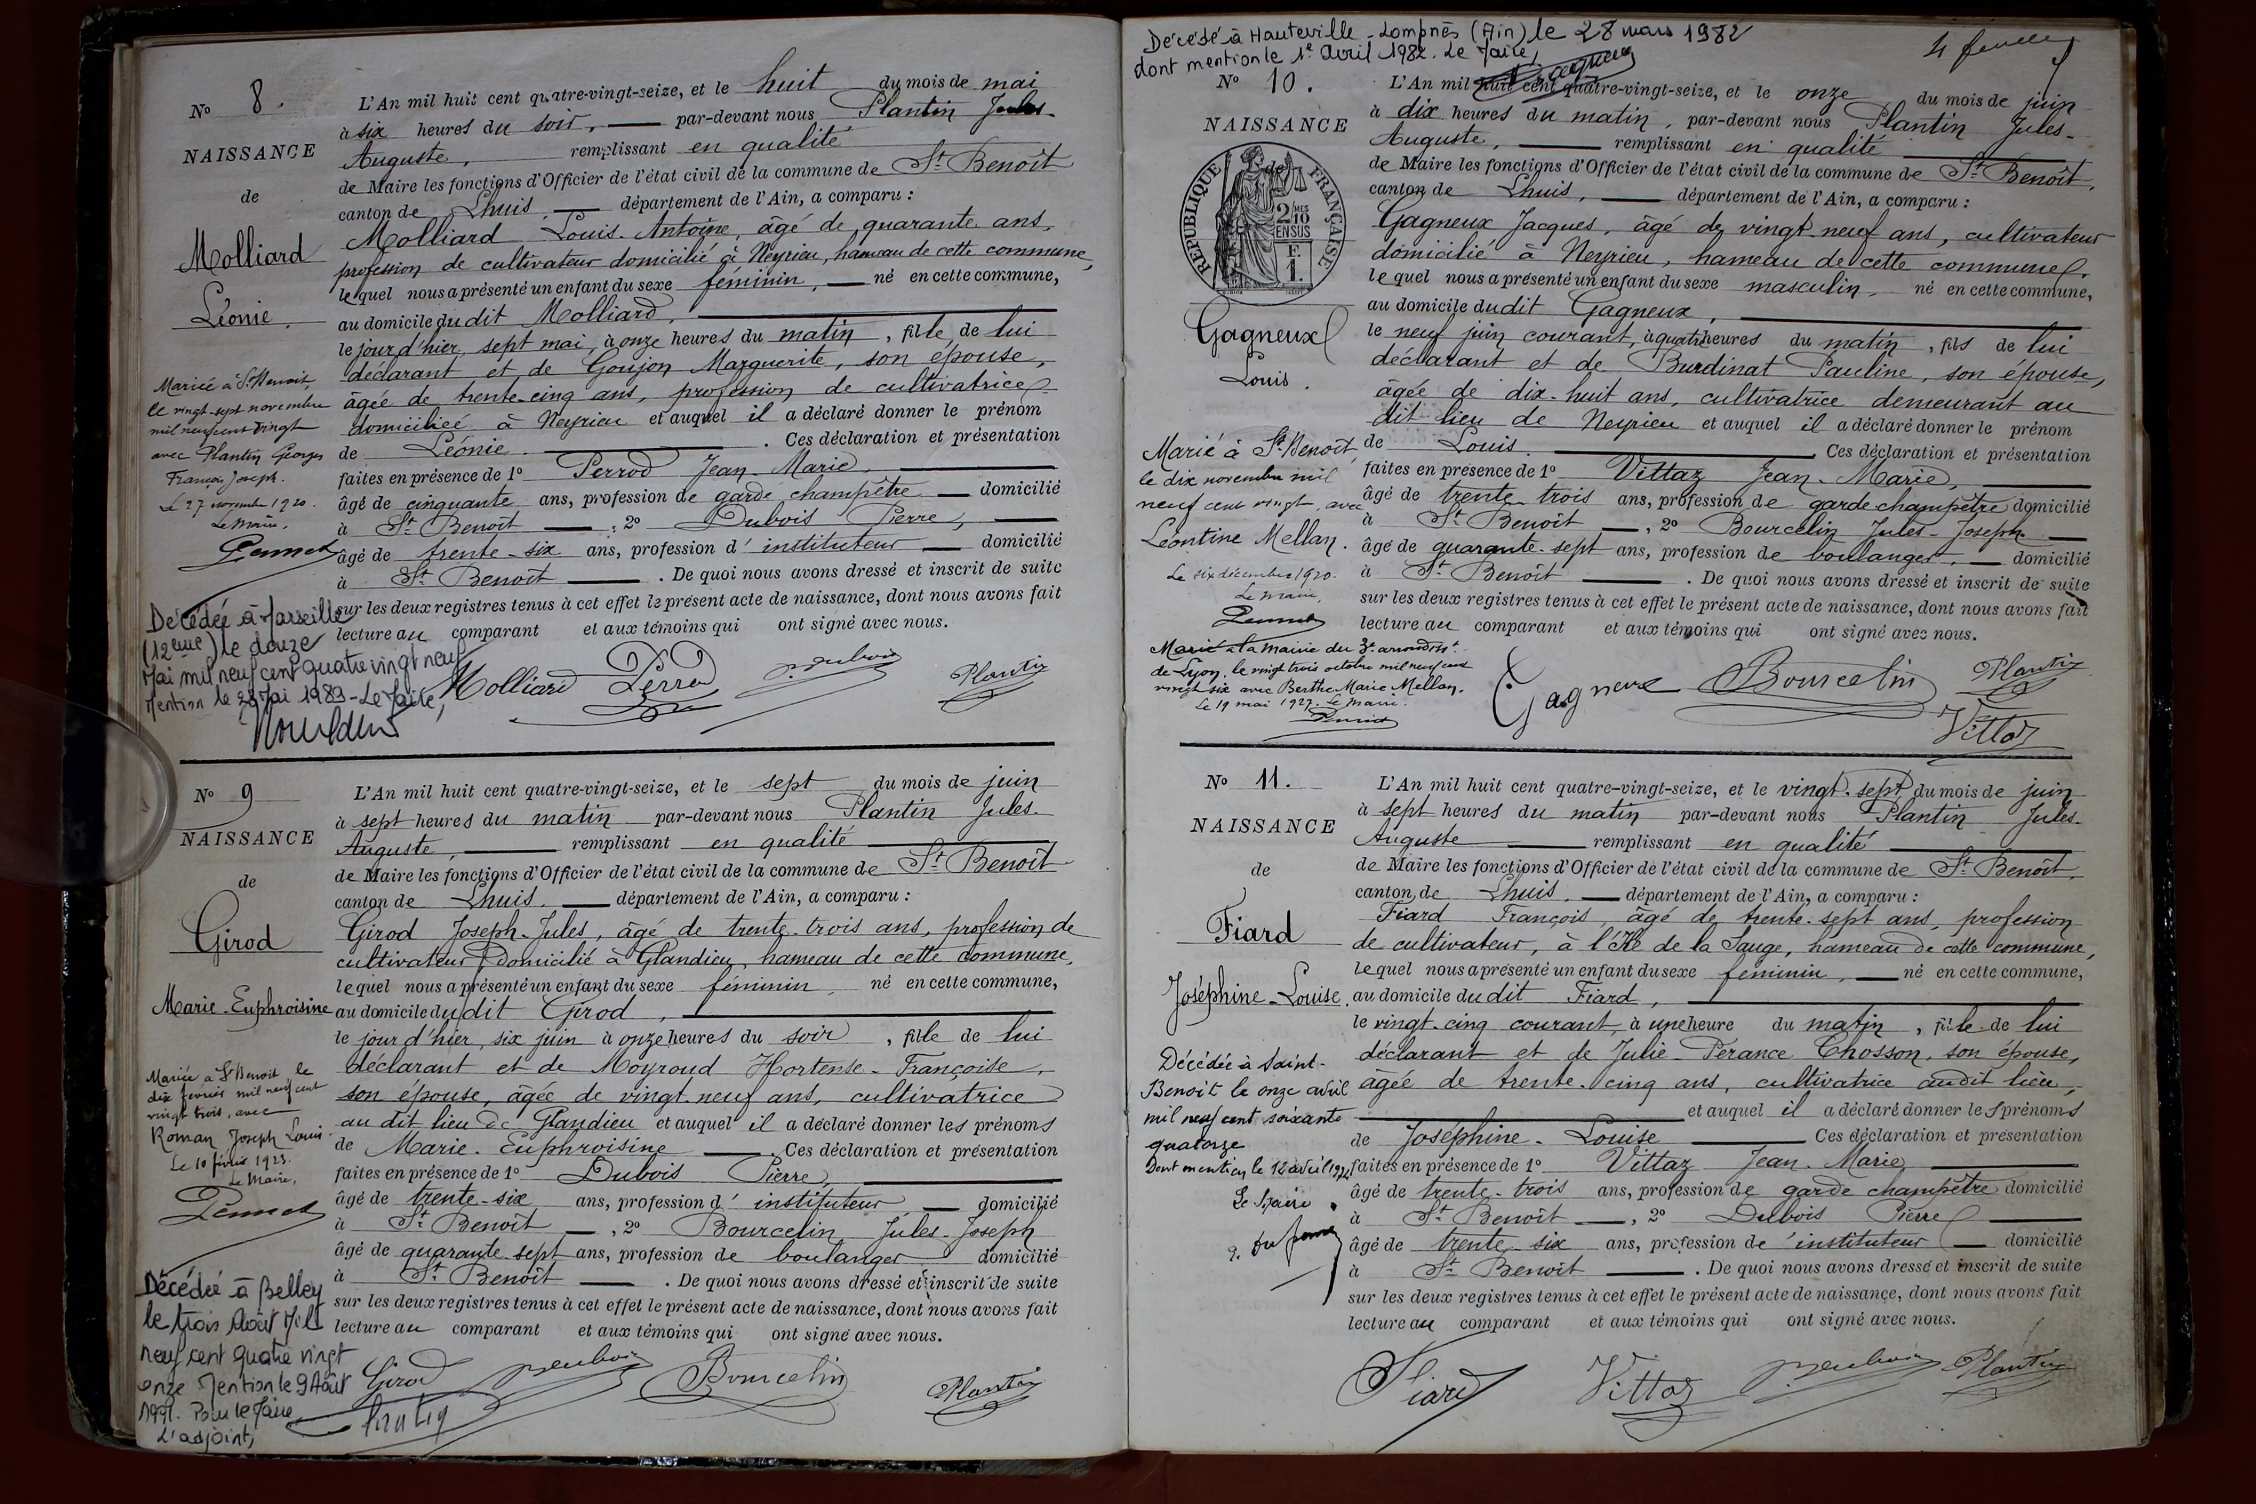 No 8.
NAISSANCE
de
Molliard
Léonie.
L'An mil huit cent quatre-vingt-seize, et le huit du mois de mai
à six heures du soir, par-devant nous Plantin Jules-
Auguste, remplissant en qualité
de Maire les fonctions d'Officier de l'état civil de la commune de St Benoît
canton de Lhuis, département de l'Ain, a comparu :
Molliard Louis Antoine, âgé de quarante ans,
profession de cultivateur domicilié à Neyrieu, hameau de cette commune,
lequel nous a présenté un enfant du sexe féminin, né en cette commune,
au domicile du dit Molliard,
le jour d'hier, sept mai, à onze heures du matin, fille de lui
déclarant et de Goujon Marguerite, son épouse,
âgée de trente-cinq ans, profession de cultivatrice
domiciliée à Neyrieu et auquel il a déclaré donner le prénom
de Léonie. Ces déclaration et présentation
faites en présence de 1o Perrod Jean-Marie,
âgé de cinquante ans, profession de garde champêtre domicilié
à St Benoît, 2o Dubois Pierre,
âgé de trente-six ans, profession d'instituteur domicilié
à St Benoît. De quoi nous avons dressé et inscrit de suite
sur les deux registres tenus à cet effet le présent acte de naissance, dont nous avons fait
lecture au comparant et aux témoins qui ont signé avec nous.
Mariée à St Benoit
le vingt-sept novembre
mil neuf cent vingt
avec Plantin Georges
François Joseph.
Le 27 novembre 1920.
Le Maire,
Pennet
Décédée à Marseille
(12eme) le douze
Mai mil neuf cent quatre vingt neuf
Mention le 28 Mai 1989 - Le Maire,
Molliard Perrod P. Dubois Plantin
No 9
NAISSANCE
de
Girod
Marie-Euphroisine
L'An mil huit cent quatre-vingt-seize, et le sept du mois de juin
à sept heures du matin par-devant nous Plantin Jules-
Auguste, remplissant en qualité
de Maire les fonctions d'Officier de l'état civil de la commune de St Benoît
canton de Lhuis, département de l'Ain, a comparu :
Girod Joseph-Jules, âgé de trente-trois ans, profession de
cultivateur, domicilié à Glandieu, hameau de cette commune,
lequel nous a présenté un enfant du sexe féminin, né en cette commune,
au domicile du dit Girod,
le jour d'hier, six juin à onze heures du soir, fille de lui
déclarant et de Moyroud Hortense-Françoise,
son épouse, âgée de vingt-neuf ans, cultivatrice
au dit lieu de Glandieu et auquel il a déclaré donner les prénoms
de Marie-Euphroisine. Ces déclaration et présentation
faites en présence de 1o Dubois Pierre,
âgé de trente-six ans, profession d'instituteur domicilié
à St Benoît, 2o Bourcelin Jules-Joseph
âgé de quarante-sept ans, profession de boulanger domicilié
à St Benoît. De quoi nous avons dressé et inscrit de suite
sur les deux registres tenus à cet effet le présent acte de naissance, dont nous avons fait
lecture au comparant et aux témoins qui ont signé avec nous.
Mariée à St Benoit le
dix février mil neuf cent
vingt trois, avec
Roman Joseph Louis.
Le 10 février 1923.
Le Maire,
Pennet
Décédée à Belley
le trois Août Mil
neuf cent quatre vingt
onze Mention le 9 Août
1991. Pour le Maire
L'adjoint,
Girod P. Dubois Bourcelin Plantin
Décédé à Hauteville-Lompnès (Ain) le 28 mars 1982
dont mention le 1e Avril 1982. Le Maire,
4 feuille
No 10.
NAISSANCE
RÉPUBLIQUE FRANÇAISE
2/10MES
EN SUS
F.
1.
Gagneux
Louis.
L'An mil huit cent quatre-vingt-seize, et le onze du mois de juin
à dix heures du matin, par-devant nous Plantin Jules-
Auguste, remplissant en qualité
de Maire les fonctions d'Officier de l'état civil de la commune de St Benoît,
canton de Lhuis, département de l'Ain, a comparu :
Gagneux Jacques, âgé de vingt-neuf ans, cultivateur
domicilié à Neyrieu, hameau de cette commune,
lequel nous a présenté un enfant du sexe masculin, né en cette commune,
au domicile du dit Gagneux,
le neuf juin courant, à quatre heures du matin, fils de lui
déclarant et de Burdinat Pauline, son épouse,
âgée de dix-huit ans, cultivatrice demeurant au
dit lieu de Neyrieu et auquel il a déclaré donner le prénom
de Louis. Ces déclaration et présentation
faites en présence de 1o Vittaz Jean-Marie,
âgé de trente-trois ans, profession de garde champêtre domicilié
à St Benoît, 2o Bourcelin Jules-Joseph
âgé de quarante-sept ans, profession de boulanger, domicilié
à St Benoît. De quoi nous avons dressé et inscrit de suite
sur les deux registres tenus à cet effet le présent acte de naissance, dont nous avons fait
lecture au comparant et aux témoins qui ont signé avec nous.
Marié à St Benoît,
le dix novembre mil
neuf cent vingt, avec
Léontine Mellan.
Le six décembre 1920.
Le Maire,
Pennet
Marié à la mairie du 3e arrondisst
de Lyon, le vingt trois octobre mil neuf cent
vingt six avec Berthe Marie Mellan.
Le 19 mai 1927. Le Maire.
Pennet
Gagneux Bourcelin Plantin
Vittaz
No 11.
NAISSANCE
de
Fiard
Joséphine-Louise.
L'An mil huit cent quatre-vingt-seize, et le vingt-sept du mois de juin
à sept heures du matin par-devant nous Plantin Jules-
Auguste remplissant en qualité
de Maire les fonctions d'Officier de l'état civil de la commune de St Benoît,
canton de Lhuis, département de l'Ain, a comparu :
Fiard François, âgé de trente-sept ans, profession
de cultivateur, à l'Ile de la Sauge, hameau de cette commune,
lequel nous a présenté un enfant du sexe féminin, né en cette commune,
au domicile du dit Fiard,
le vingt-cinq courant, à une heure du matin, fille de lui
déclarant et de Julie-Pérance Chosson, son épouse,
âgée de trente-cinq ans, cultivatrice audit lieu,
et auquel il a déclaré donner les prénoms
de Joséphine-Louise Ces déclaration et présentation
faites en présence de 1o Vittaz Jean-Marie,
âgé de trente-trois ans, profession de garde champêtre domicilié
à St Benoît, 2o Dubois Pierre
âgé de trente-six ans, profession de 'instituteur domicilié
à St Benoît. De quoi nous avons dressé et inscrit de suite
sur les deux registres tenus à cet effet le présent acte de naissance, dont nous avons fait
lecture au comparant et aux témoins qui ont signé avec nous.
Décédée à Saint-
Benoît le onze avril
mil neuf cent soixante
quatorze
Dont mention le 12 avril 1974
Le Maire
Fiard Vittaz P. Dubois Plantin